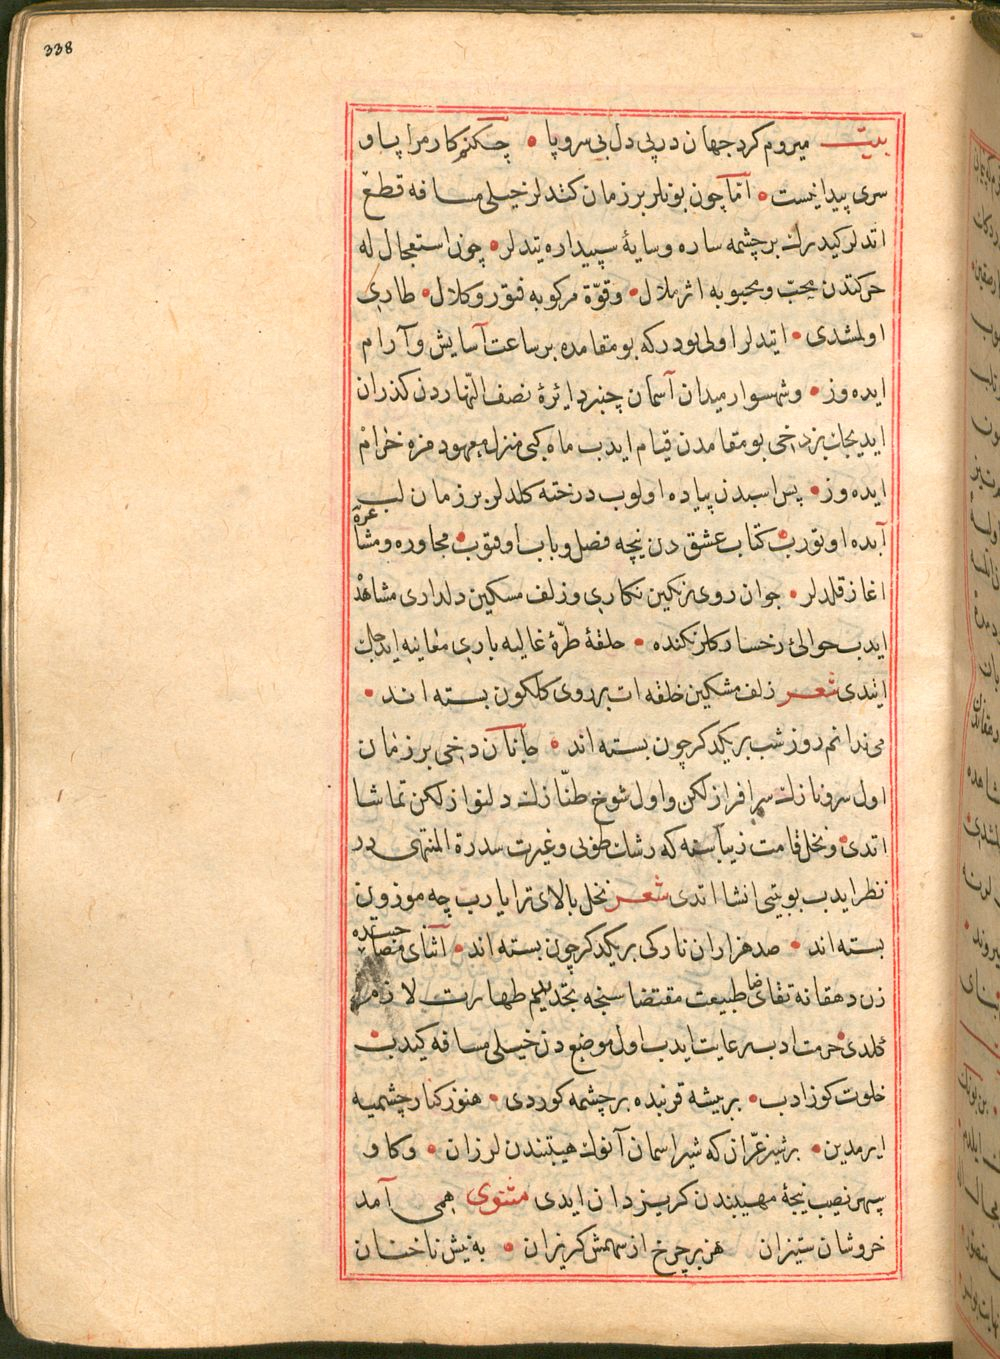 338
بیت میروم کرد جهان در پی دل بی سروپا • چکنم کار مرا پا و
سری پیدا نیست • امّا چون بونلر بر زمان کتدلر خیلی مسافه قطع
اتدلر کیدرك بر چشمه ساره و سایهٔ سپیداره یتدلر • چون استعجال له
حرکتدن محبّ و محبوبه اثر ملال • و قوّة مرکوبه فتور و کلال • طاری
اولمشدی • ایتدلر اولی بودر که بو مقامده بر ساعت آسایش و آرام
ایده وز • و شهسوار میدان آسمان چنبر دایرۀ نصف النّهاردن کذران
ایدیجان بز دخی بو مقامدن قیام ایدب ماه کبی منزل معهودمزه خرام
ایده وز • پس اسبدن پیاده اولوب درخته کلدلر بر زمان لب
آبده اوتورب کتاب عشق دن نیچه فصل و باب اوقوب • مجاوره و مشاعرة
اغاز قلدلر • جوان روی رنکین نکاری و زلف مسکین دلداری مشاهده
ایدب حوالئ رخسار کلرنکنده • حلقهٔ طرّهٔ غالیه باری معاینه ایدجك
ایتدی شعر زلف مشکین خلقه ات بر روی کلکون بسته اند •
می ندانم روز شب بر یکدکر چون بسته اند • جانان دخی بر زمان
اول سرو نازك سرافرازلکن و اول شوخ طنّازك دلنوازلکن تماشا
اتدی • و نخل قامت زیباسنه که رشك طوبی و غیرت سدرة المنتهی در
نظر ایدب بو بیتی انشا اتدی شعر نخل بالای ترا یارب چه موزون
بسته اند • صد هزاران نازکی بر یکدکر چون بسته اند • آثنای مصاحبتده
زن دهقانه تقاضای طبیعت مقتضاسنجه تجدید طهارت لازم
کلدی • حرمت ادبه رعایت ایدب اول موضع دن خیلی مسافه کیدب
خلوت کوزادب • بر بیشه قربنده بر چشمه کوردی • هنوز کنار چشمیه
ایرمدین • بر شیر غرّان که شیر اسمان آنوك هیبتندن لرزان • و کاو
سپهر نصیب نیجهٔ مهیبندن کریزدان ایدی مثنوی همی آمد
خروشان ستیزان هزبر چرخ از سهمش کریزان • به نیش ناخنان